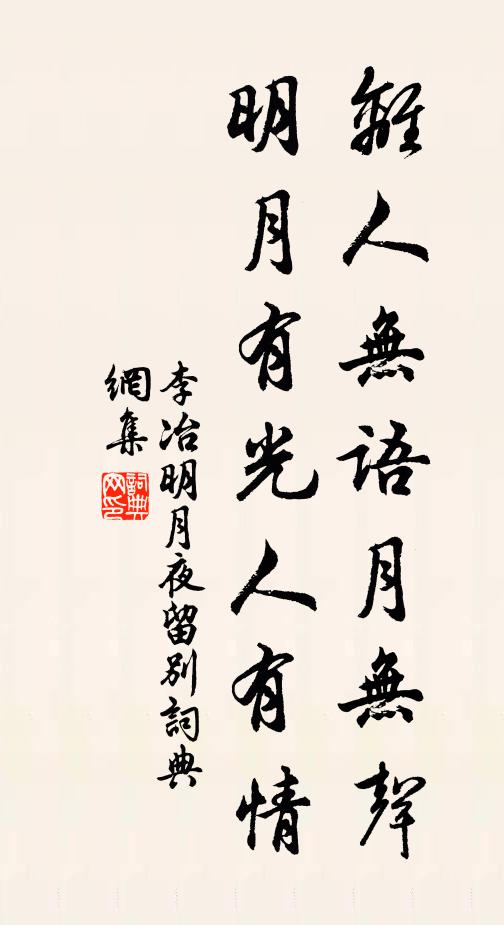 離人無語月無聲
明月有光人有情
李冶明月夜留別詞典
網集
詞典
网印